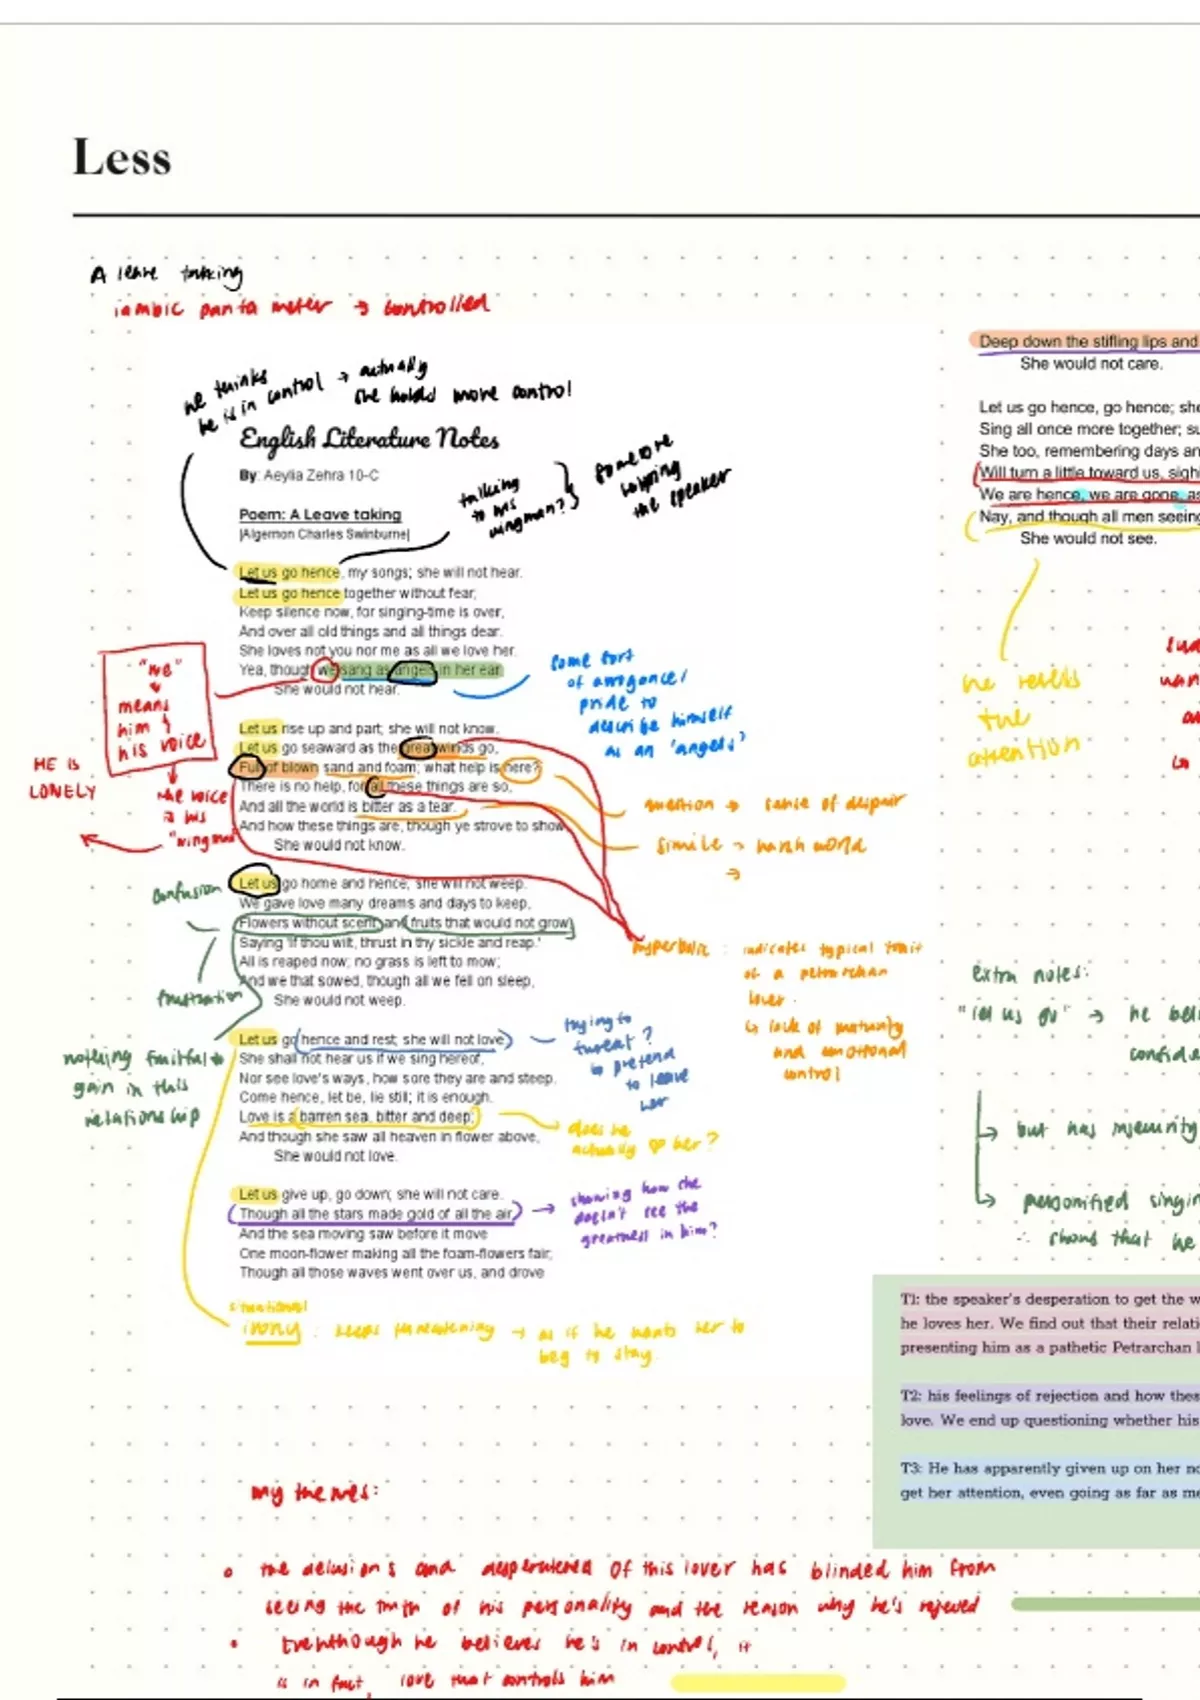 Less
A leave taking
iambic panta meter → controlled
he thinks
he is in control → actually
she holds more control
English Literature Notes
By: Aeylia Zehra 10-C
talking
to his
wingman?
someone
helping
the speaker
Poem: A Leave taking
|Algernon Charles Swinburne|
Let us go hence, my songs; she will not hear.
Let us go hence together without fear;
Keep silence now, for singing-time is over,
And over all old things and all things dear.
She loves not you nor me as all we love her.
Yea, though we sang as angels in her ear,
She would not hear.
"we"
means
him &
his voice
the voice
is his
"wingman"
HE IS
LONELY
some sort
of arrogance/
pride to
describe himself
as an 'angels'
Let us rise up and part; she will not know.
Let us go seaward as the great winds go,
Full of blown sand and foam; what help is here?
There is no help, for all these things are so,
And all the world is bitter as a tear.
And how these things are, though ye strove to show,
She would not know.
question → sense of despair
simile → harsh world
→
Let us go home and hence; she will not weep.
We gave love many dreams and days to keep,
Flowers without scent, and fruits that would not grow,
Saying 'If thou wilt, thrust in thy sickle and reap.'
All is reaped now; no grass is left to mow;
And we that sowed, though all we fell on sleep,
She would not weep.
confusion
frustration
nothing fruitful to
gain in this
relationship
hyperbolic : indicates typical trait
of a petrarchan
lover.
↳ lack of maturity
and emotional
control
Let us go hence and rest; she will not love.
She shall not hear us if we sing hereof,
Nor see love's ways, how sore they are and steep.
Come hence, let be, lie still; it is enough.
Love is a barren sea, bitter and deep;
And though she saw all heaven in flower above,
She would not love.
trying to
threat?
↳ pretend
to leave
her
does he
actually ♡ her?
Let us give up, go down; she will not care.
Though all the stars made gold of all the air,
And the sea moving saw before it move
One moon-flower making all the foam-flowers fair;
Though all those waves went over us, and drove
showing how she
doesn't see the
greatness in him?
situational
irony : keeps threatening → as if he wants her to
beg to stay.
my themes:
• the delusions and desperateness of this lover has blinded him from
seeing the truth of his personality and the reason why he's rejected
• Eventhough he believes he's in control, it
is in fact, love that controls him
Deep down the stifling lips and
She would not care.
Let us go hence, go hence; she
Sing all once more together; su
She too, remembering days an
Will turn a little toward us, sighi
We are hence, we are gone, as
Nay, and though all men seeing
She would not see.
he resets
the
attention
extra notes:
"let us go" → he beli
confide
↳ but has insecurity
↳ personified singin
∴ shows that he
T1: the speaker's desperation to get the w
he loves her. We find out that their relati
presenting him as a pathetic Petrarchan l
T2: his feelings of rejection and how thes
love. We end up questioning whether his
T3: He has apparently given up on her no
get her attention, even going as far as me